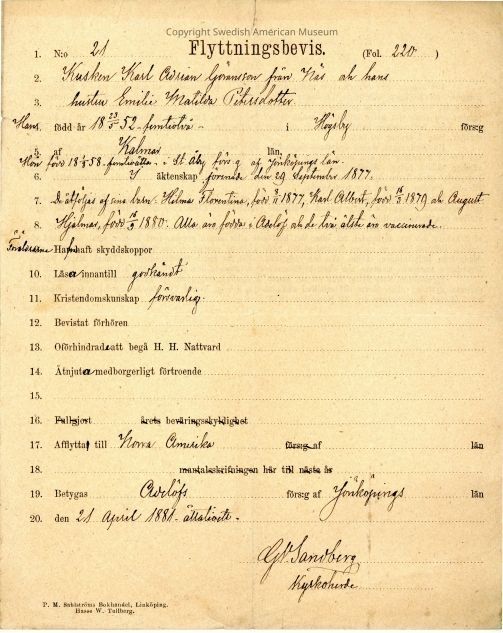 Copyright Swedish American Museum
Flyttningsbevis.
1. N:o 21 (Fol. 220)
2. Kusken Karl Adrian Göransson från Näs och hans
3. hustru Emilie Matilda Petersdotter
4. Han född år 18 23/5 52 - femtiotvå - i Högsby förs:g
5. af Kalmar län.
Hon född 18 58 - femtioåtta - i St. Åby förs:g af Jönköpings län.
6. I äktenskap förenade den 29 September 1877.
7. De åtföljas af sina barn: Helma Florentina, född 1877, Karl Albert, född 1879 och August
8. Hjalmar, född 1880. Alla äro födda i Adelöf och de två älste äro vaccinerade.
9. Föräldrarne Hafva haft skyddskoppor
10. Läsa innantill godkändt
11. Kristendomskunskap försvarlig.
12. Bevistat förhören
13. Oförhindrade att begå H. H. Nattvard
14. Åtnjuta medborgerligt förtroende
15.
16. Fullgjort årets beväringsskyldighet
17. Afflytta till Norra Amerika förs:g af län
18. mantalsskrifningen här till nästa år
19. Betygas Adelöfs förs:g af Jönköpings län
20. den 21 April 1881 - åttatioett -
Sandberg
Kyrkoherde
P. M. Sahlströms Bokhandel, Linköping.
Hasse W. Tullberg.